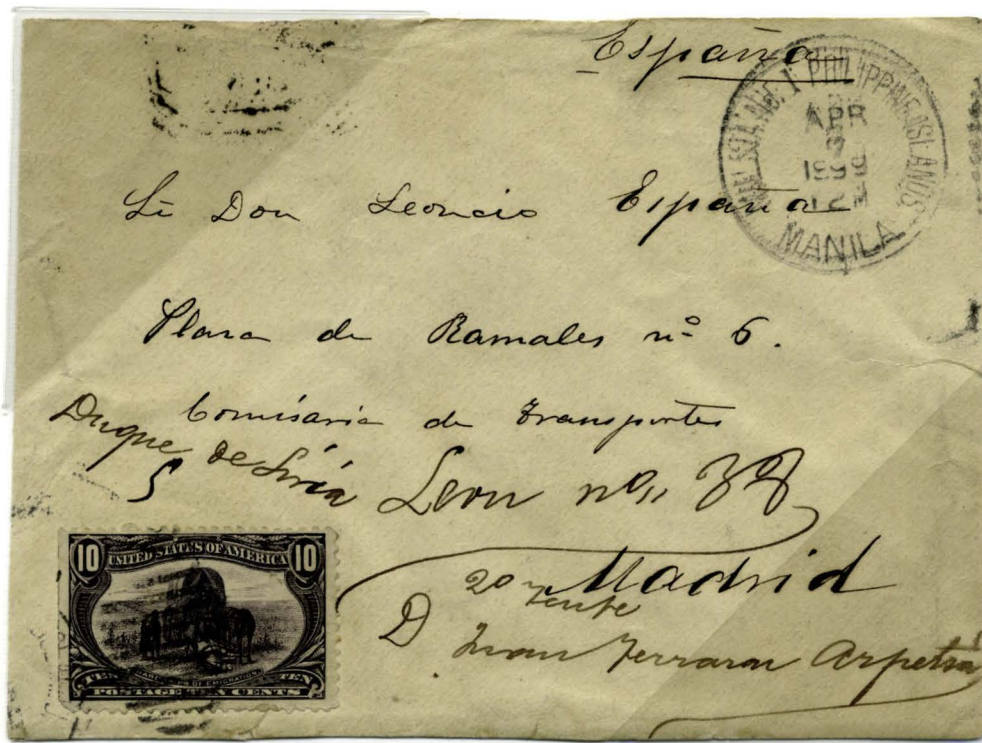 España
MIL. STA. No. 1 PHILIPPINE ISLANDS
APR
1899
12 M
MANILA
Don Leoncio España
Plaza de Ramales nº 6.
Comisaria de Transportes
Duque de Liria
5
Leon nº 38
Madrid
2º
D Juan Ferrara
10 UNITED STATES OF AMERICA 10
OF EMIGRATION
TEN TEN
POSTAGE TEN CENTS